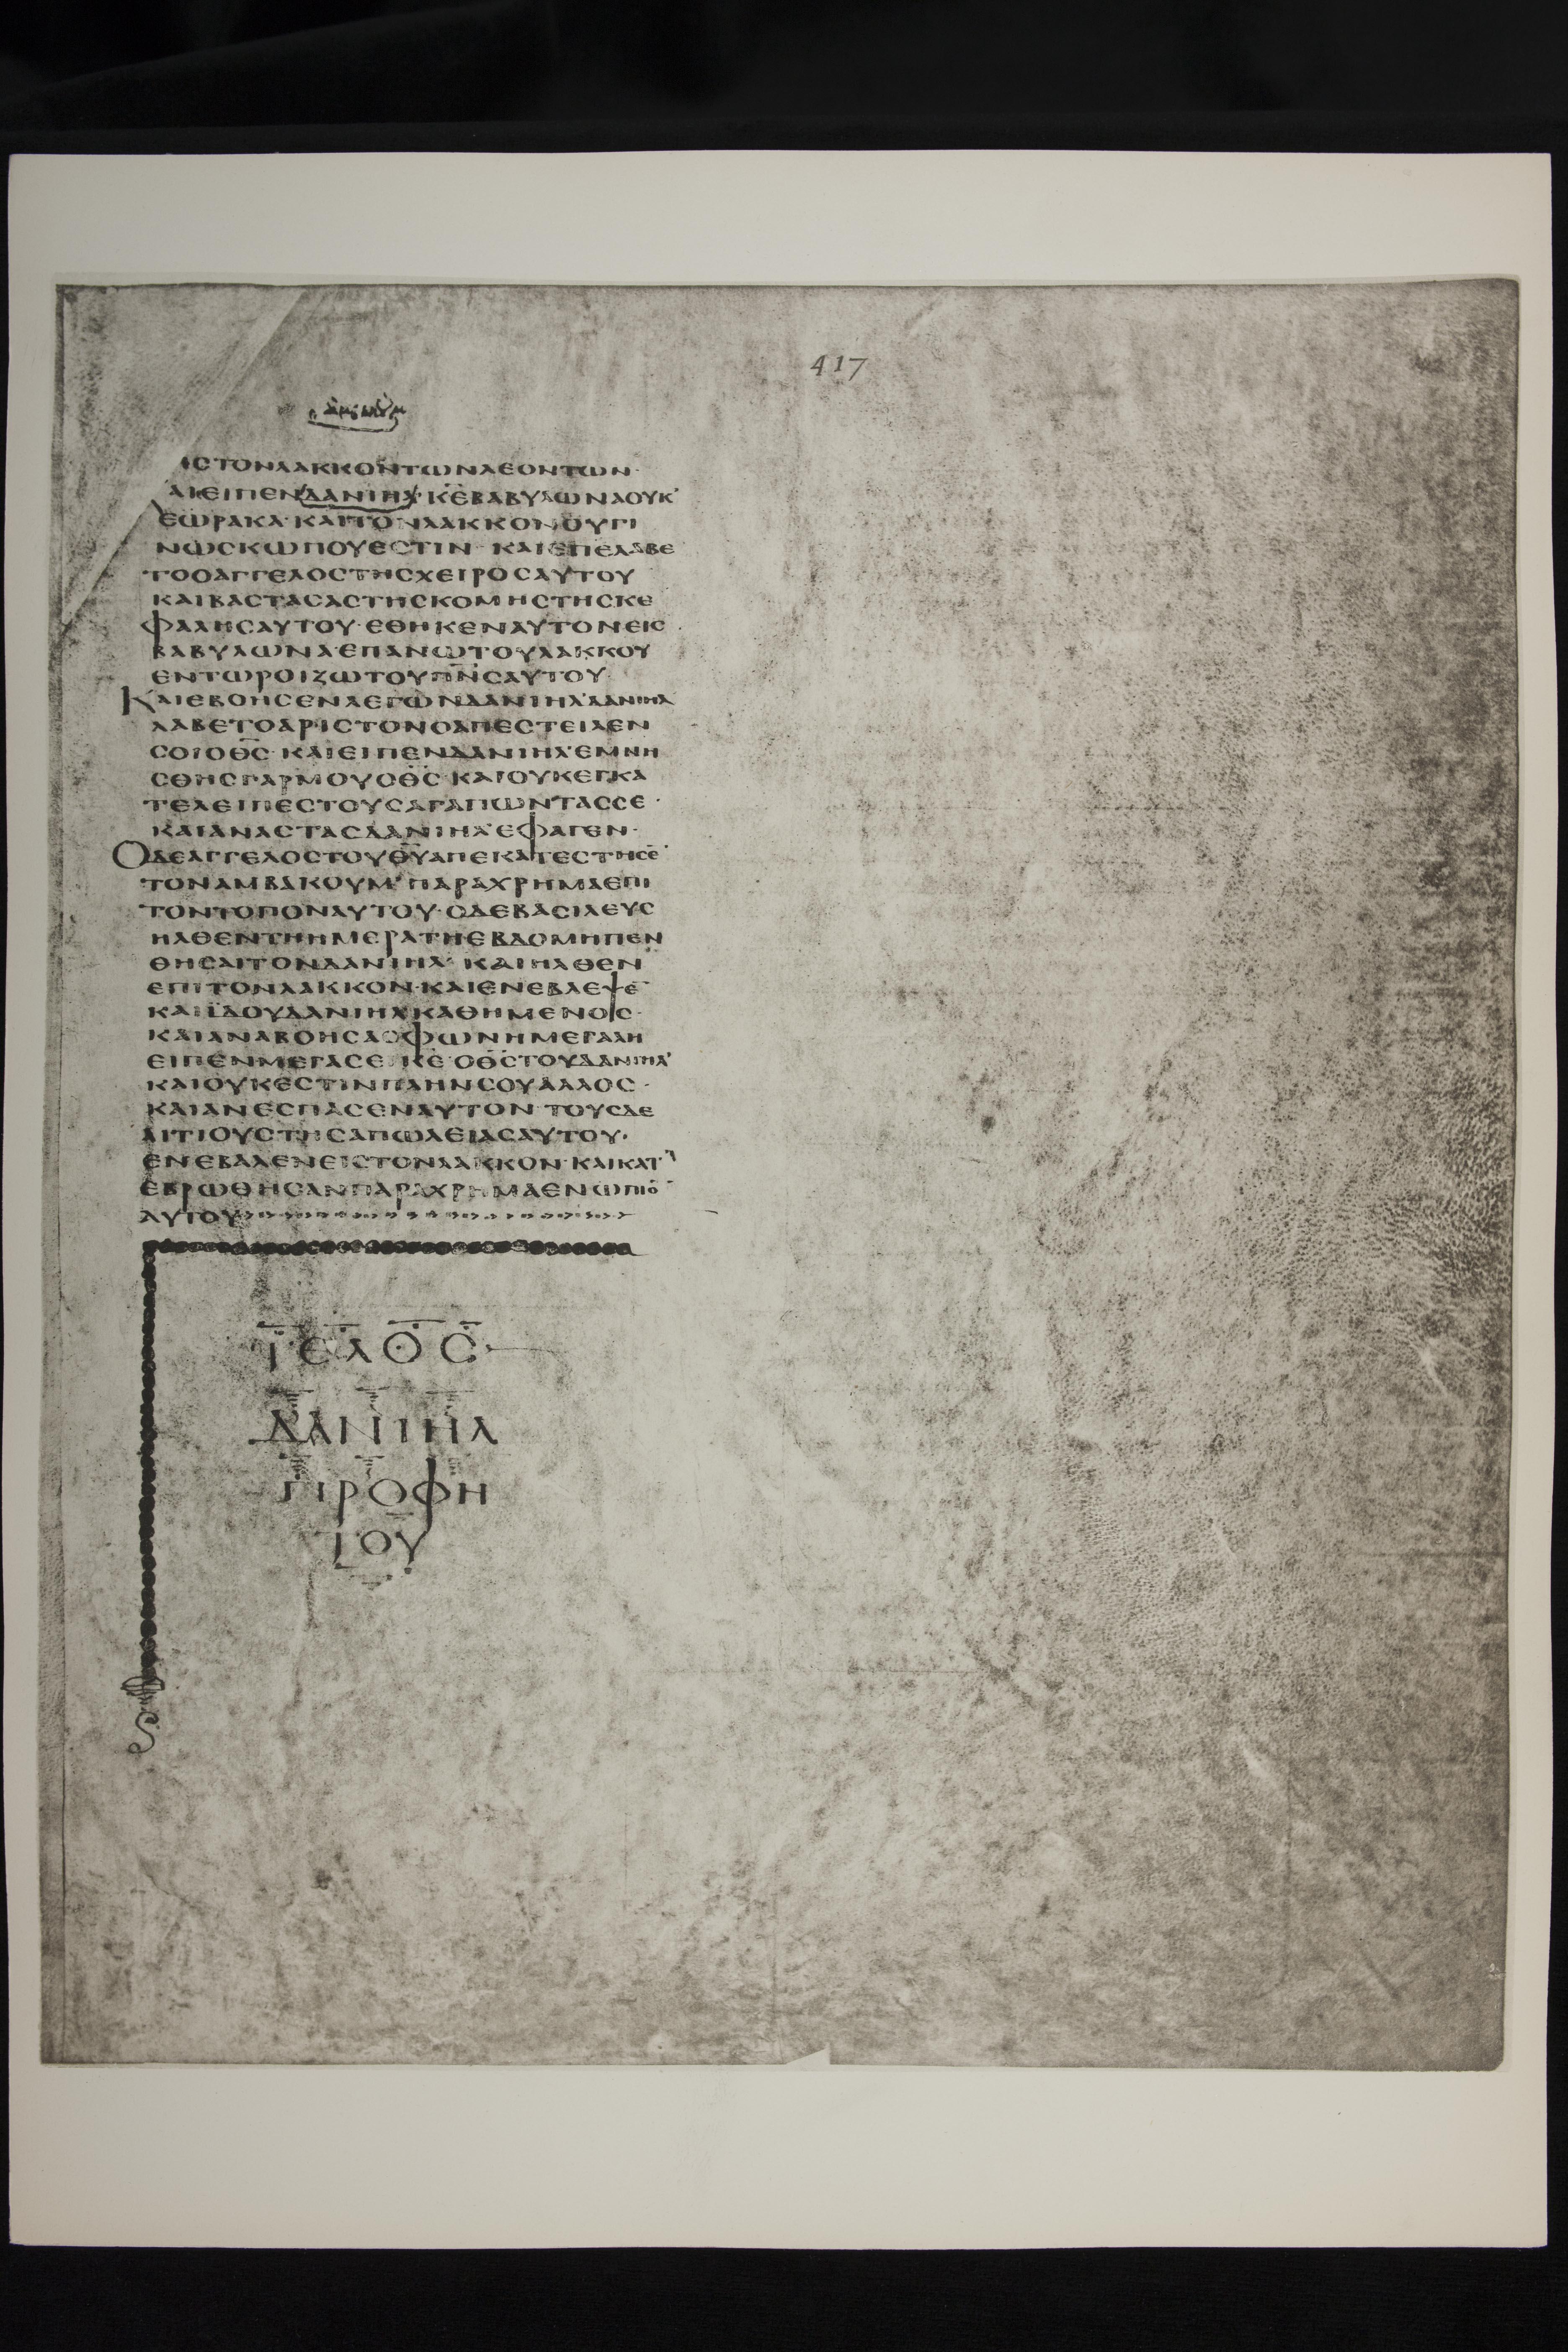 417
ΙϹΤΟΝΛΑΚΚΟΝΤΩΝΛΕΟΝΤΩΝ·
ΑΙΕΙΠΕΝΔΑΝΙΗΛ· ΚΕ ΒΑΒΥΛΩΝΑΟΥΚ
ΕΩΡΑΚΑ· ΚΑΙΤΟΝΛΑΚΚΟΝΟΥΓΙ
ΝΩϹΚΩΠΟΥΕϹΤΙΝ· ΚΑΙΕΠΕΛΑΒΕ
ΤΟΟΑΓΓΕΛΟϹΤΗϹΧΕΙΡΟϹΑΥΤΟΥ
ΚΑΙΒΑϹΤΑϹΑϹΤΗϹΚΟΜΗϹΤΗϹΚΕ
ΦΑΛΗϹΑΥΤΟΥ· ΕΘΗΚΕΝΑΥΤΟΝΕΙϹ
ΒΑΒΥΛΩΝΑ· ΕΠΑΝΩΤΟΥΛΑΚΚΟΥ
ΕΝΤΩΡΟΙΖΩΤΟΥΠΝ̅Ϲ̅ΑΥΤΟΥ·
ΚΑΙΕΒΟΗϹΕΝΛΕΓΩΝΔΑΝΙΗΛ· ΔΑΝΙΗΛ
ΛΑΒΕΤΟΑΡΙϹΤΟΝΟΑΠΕϹΤΕΙΛΕΝ
ϹΟΙΟΘ̅Ϲ̅· ΚΑΙΕΙΠΕΝΔΑΝΙΗΛ· ΕΜΝΗ
ϹΘΗϹΓΑΡΜΟΥΟΘ̅Ϲ̅· ΚΑΙΟΥΚΕΓΚΑ
ΤΕΛΕΙΠΕϹΤΟΥϹΑΓΑΠΩΝΤΑϹϹΕ·
ΚΑΙΑΝΑϹΤΑϹΔΑΝΙΗΛ· ΕΦΑΓΕΝ·
ΟΔΕΑΓΓΕΛΟϹΤΟΥΘ̅Υ̅ΑΠΕΚΑΤΕϹΤΗϹΕ̅
ΤΟΝΑΜΒΑΚΟΥΜ· ΠΑΡΑΧΡΗΜΑΕΠΙ
ΤΟΝΤΟΠΟΝΑΥΤΟΥ· ΟΔΕΒΑϹΙΛΕΥϹ
ΗΛΘΕΝΤΗΗΜΕΡΑΤΗΕΒΔΟΜΗΠΕΝ
ΘΗϹΑΙΤΟΝΔΑΝΙΗΛ· ΚΑΙΗΛΘΕΝ
ΕΠΙΤΟΝΛΑΚΚΟΝ· ΚΑΙΕΝΕΒΛΕΨΕ̅
ΚΑΙΪΔΟΥΔΑΝΙΗΛΚΑΘΗΜΕΝΟϹ·
ΚΑΙΑΝΑΒΟΗϹΑϹΦΩΝΗΜΕΓΑΛΗ
ΕΙΠΕΝΜΕΓΑϹΕΙΚ̅Ε̅ ΟΘ̅Ϲ̅ΤΟΥΔΑΝΙΗΛ
ΚΑΙΟΥΚΕϹΤΙΝΠΛΗΝϹΟΥΑΛΛΟϹ·
ΚΑΙΑΝΕϹΠΑϹΕΝΑΥΤΟΝ· ΤΟΥϹΔΕ
ΑΙΤΙΟΥϹΤΗϹΑΠΩΛΕΙΑϹΑΥΤΟΥ·
ΕΝΕΒΑΛΕΝΕΙϹΤΟΝΛΑΚΚΟΝ· ΚΑΙΚΑΤ
ΕΒΡΩΘΗϹΑΝΠΑΡΑΧΡΗΜΑΕΝΩΠΙΟ̅
ΑΥΤΟΥ
ΤΕΛΟϹ
ΔΑΝΙΗΛ
ΠΡΟΦΗ
ΤΟΥ